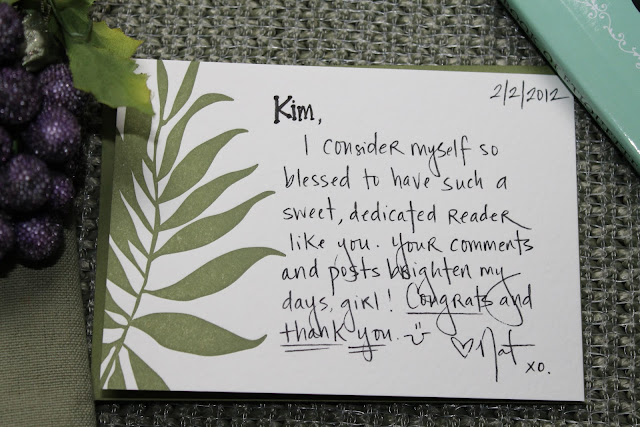 2/2/2012
Kim,
I consider myself so
blessed to have such a
sweet, dedicated reader
like you. Your comments
and posts brighten my
days, girl! Congrats and
thank you. :)
♡ Nat
xo.